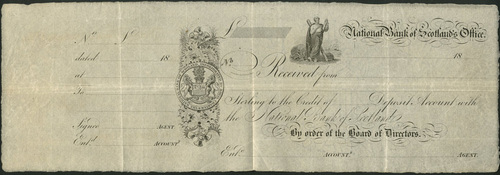 No. £
£ National Bank of Scotland's Office.
dated 18
18
at No.
Received from
To
Sterling to the Credit of Deposit Account with
the National Bank of Scotland
Signed AGENT
By order of the Board of Directors.
AGENT
Entd. ACCOUNT.
Entd. ACCOUNT.